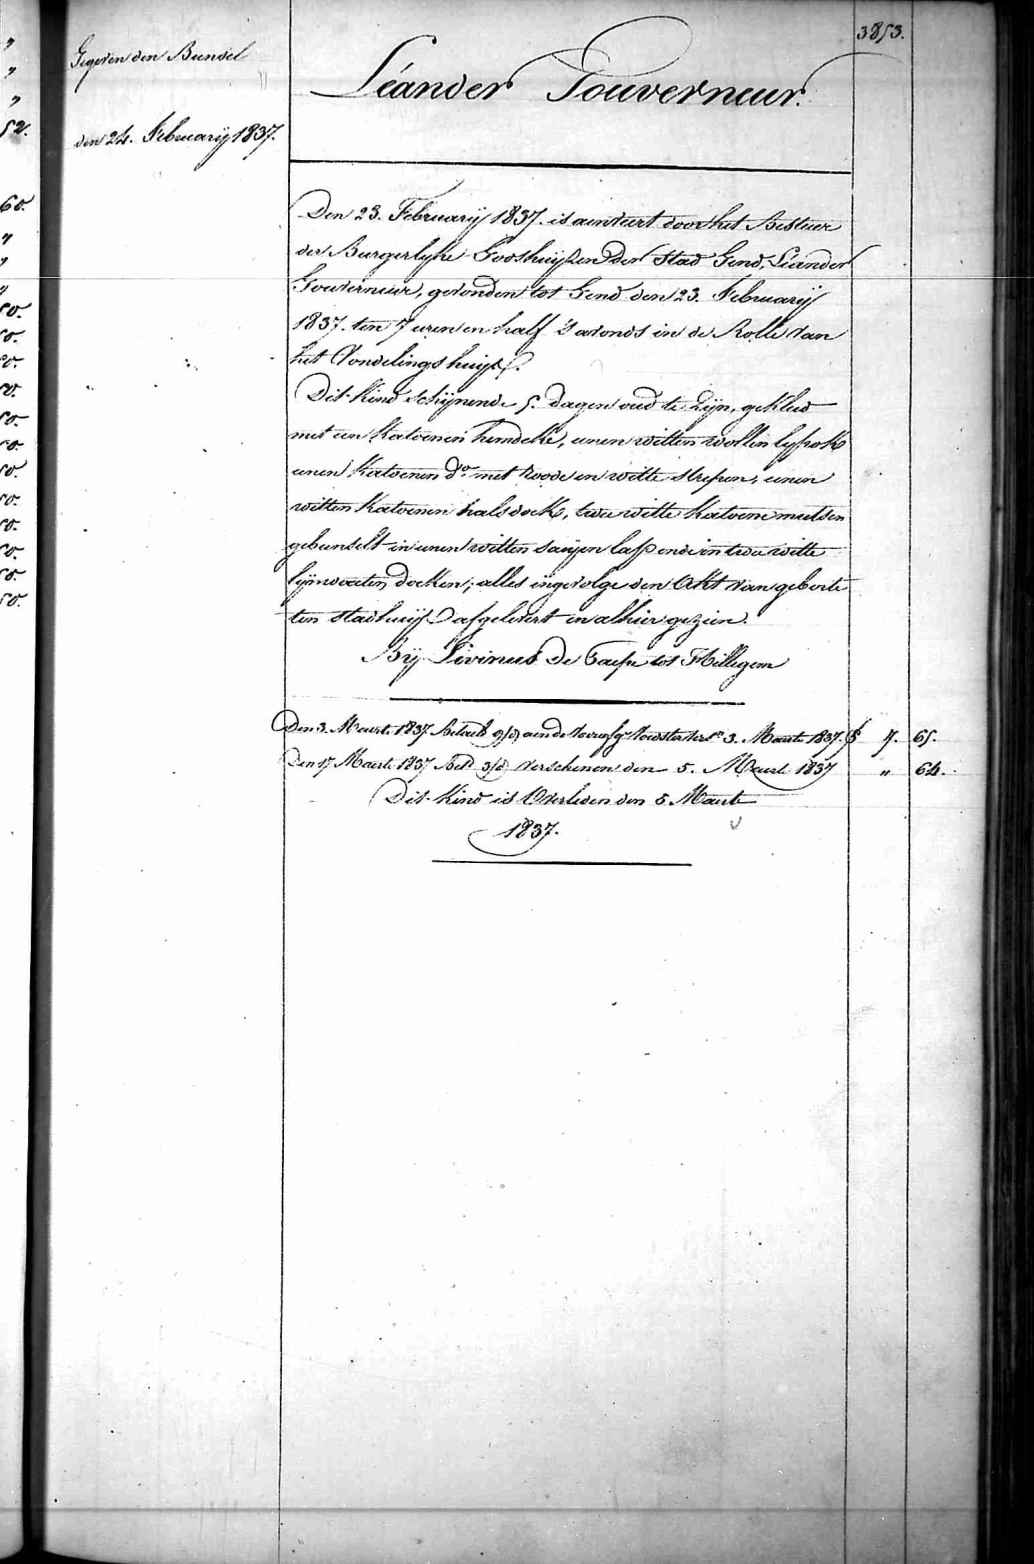 3853.
Gegeven den Bundel
den 24. February 1837.
Léander Gouverneur.
Den 23. February 1837. is aenveert door het Bestuer
der Burgerlyke Godshuyzen der Stad Gend, Léander
Gouverneur, gevonden tot Gend den 23. February
1837. ten 7 uren en half 's avonds in de Rolle van
het Vondelingshuys.
Dit kind schynende 5. dagen oud te zyn, gekleed
met een katoenen hemdeke, eenen witten wollen lyfrok
eenen katoenen do. met roode en witte strepen, eenen
witten katoenen halsdoek, twee witte katoene mutsen
gebunselt in eenen witten saeyen lap ende in twee witte
lynwaeten doeken; alles ingevolge den Akt van geboorte
ten stadhuyse afgelevert en alhier gezien.
By Livinus De Taeye tot Hillegem
Den 3. Maert 1837 betaelt aen de Voedster 3. Maert 1837. f 7. 65.
Den 17 Maert 1837 Bet. verschenen den 5. Maert 1837 " 64.
Dit kind is Overleden den 5 Maert
1837.
60.
52.
50.
50.
50.
50.
50.
50.
50.
50.
50.
50.
50.
50.